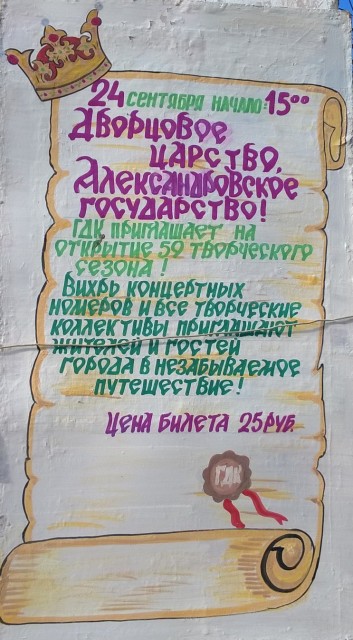 24 сентября начало: 15⁰⁰
Дворцовое
царство,
Александровское
государство!
ГДК приглашает на
открытие 52 творческого
сезона!
Вихрь концертных
номеров и все творческие
коллективы приглашают
жителей и гостей
города в незабываемое
путешествие!
Цена билета 25 руб.
ГДК